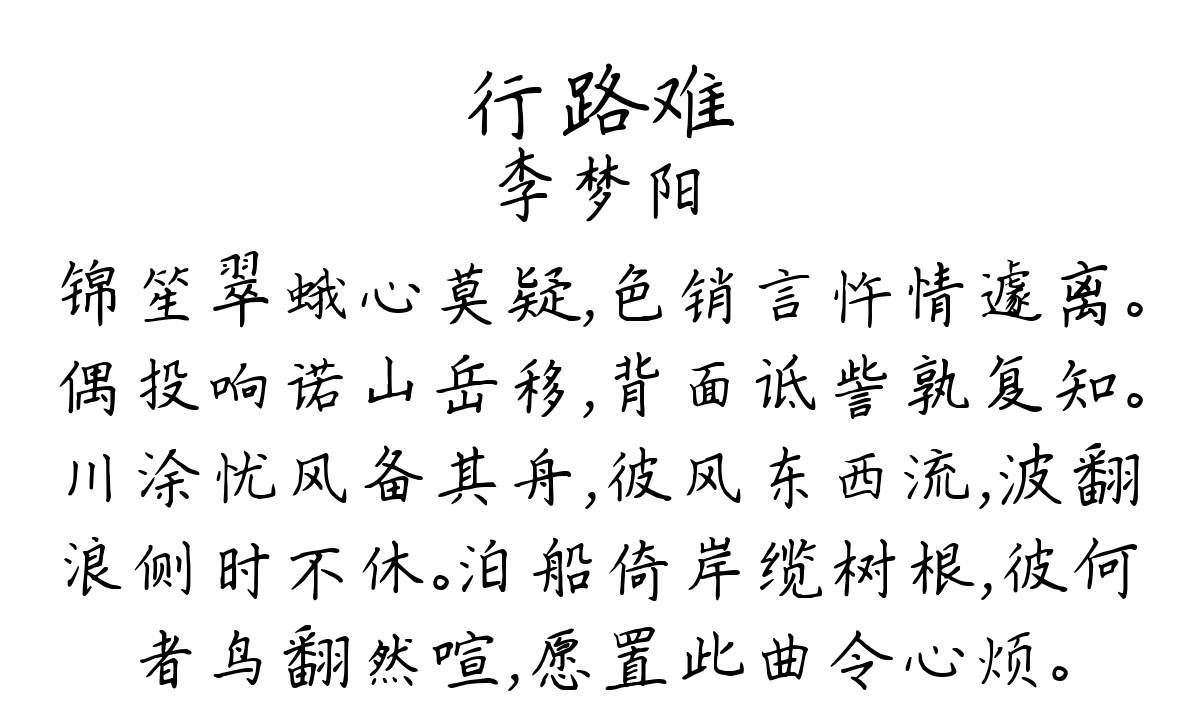 行路难
李梦阳
锦笙翠蛾心莫疑,色销言忤情遽离。
偶投响诺山岳移,背面诋訾孰复知。
川涂忧风备其舟,彼风东西流,波翻
浪侧时不休。泊船倚岸缆树根,彼何
者鸟翻然喧,愿置此曲令心烦。